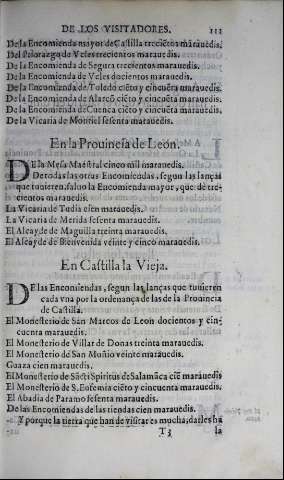 DE LOS VISITADORES. 111
De la Encomienda mayor de Castilla treciẽtos marauedis.
Del Priorazgo de Veles trecientos marauedis.
De la Encomienda de Segura trecientos marauedis.
De la Encomienda de Veles docientos marauedis.
De la Encomienda de Toledo ciẽto y cincuẽta marauedis.
De la Encomienda de Alarcõ ciẽto y cincuẽta marauedis.
De la Encomienda de Cuenca ciẽto y cincuẽta marauedis.
De la Vicaria de Montiel sesenta marauedis.
En la Prouincia de León.
DE la Mesa Maestral cinco mil marauedis.
De todas las otras Encomiendas, segun las lanças
que tuuieren, saluo la Encomienda mayor, que dè tre-
cientos marauedis.
La Vicaria de Tudia esen marauedis.
La Vicaria de Merida sesenta marauedis.
El Alcayde de Maguilla treinta marauedis.
El Alcayde de Bienvenida veinte y cinco marauedis.
En Castilla la Vieja.
DE las Encomiendas, segun las lanças que tuuieren
cada vna por la ordenança de las de la Prouincia
de Castilla.
El Monesterio de San Marcos de Leon docientos y cin-
cuenta marauedis.
El Monesterio de Villar de Donas treinta marauedis.
El Monesterio de San Muñio veinte marauedis.
Guaza cien marauedis.
El Monesterio de Sãcti Spiritus de Salamãca ciẽ marauedis
El Monesterio de S. Eofemia ciẽto y cincuenta marauedis.
El Abadia de Paramo sesenta marauedis.
De las Encomiendas de las tiendas cien marauedis.
Y porque la tierra que han de visitar es mucha, darles ha
T 3 la